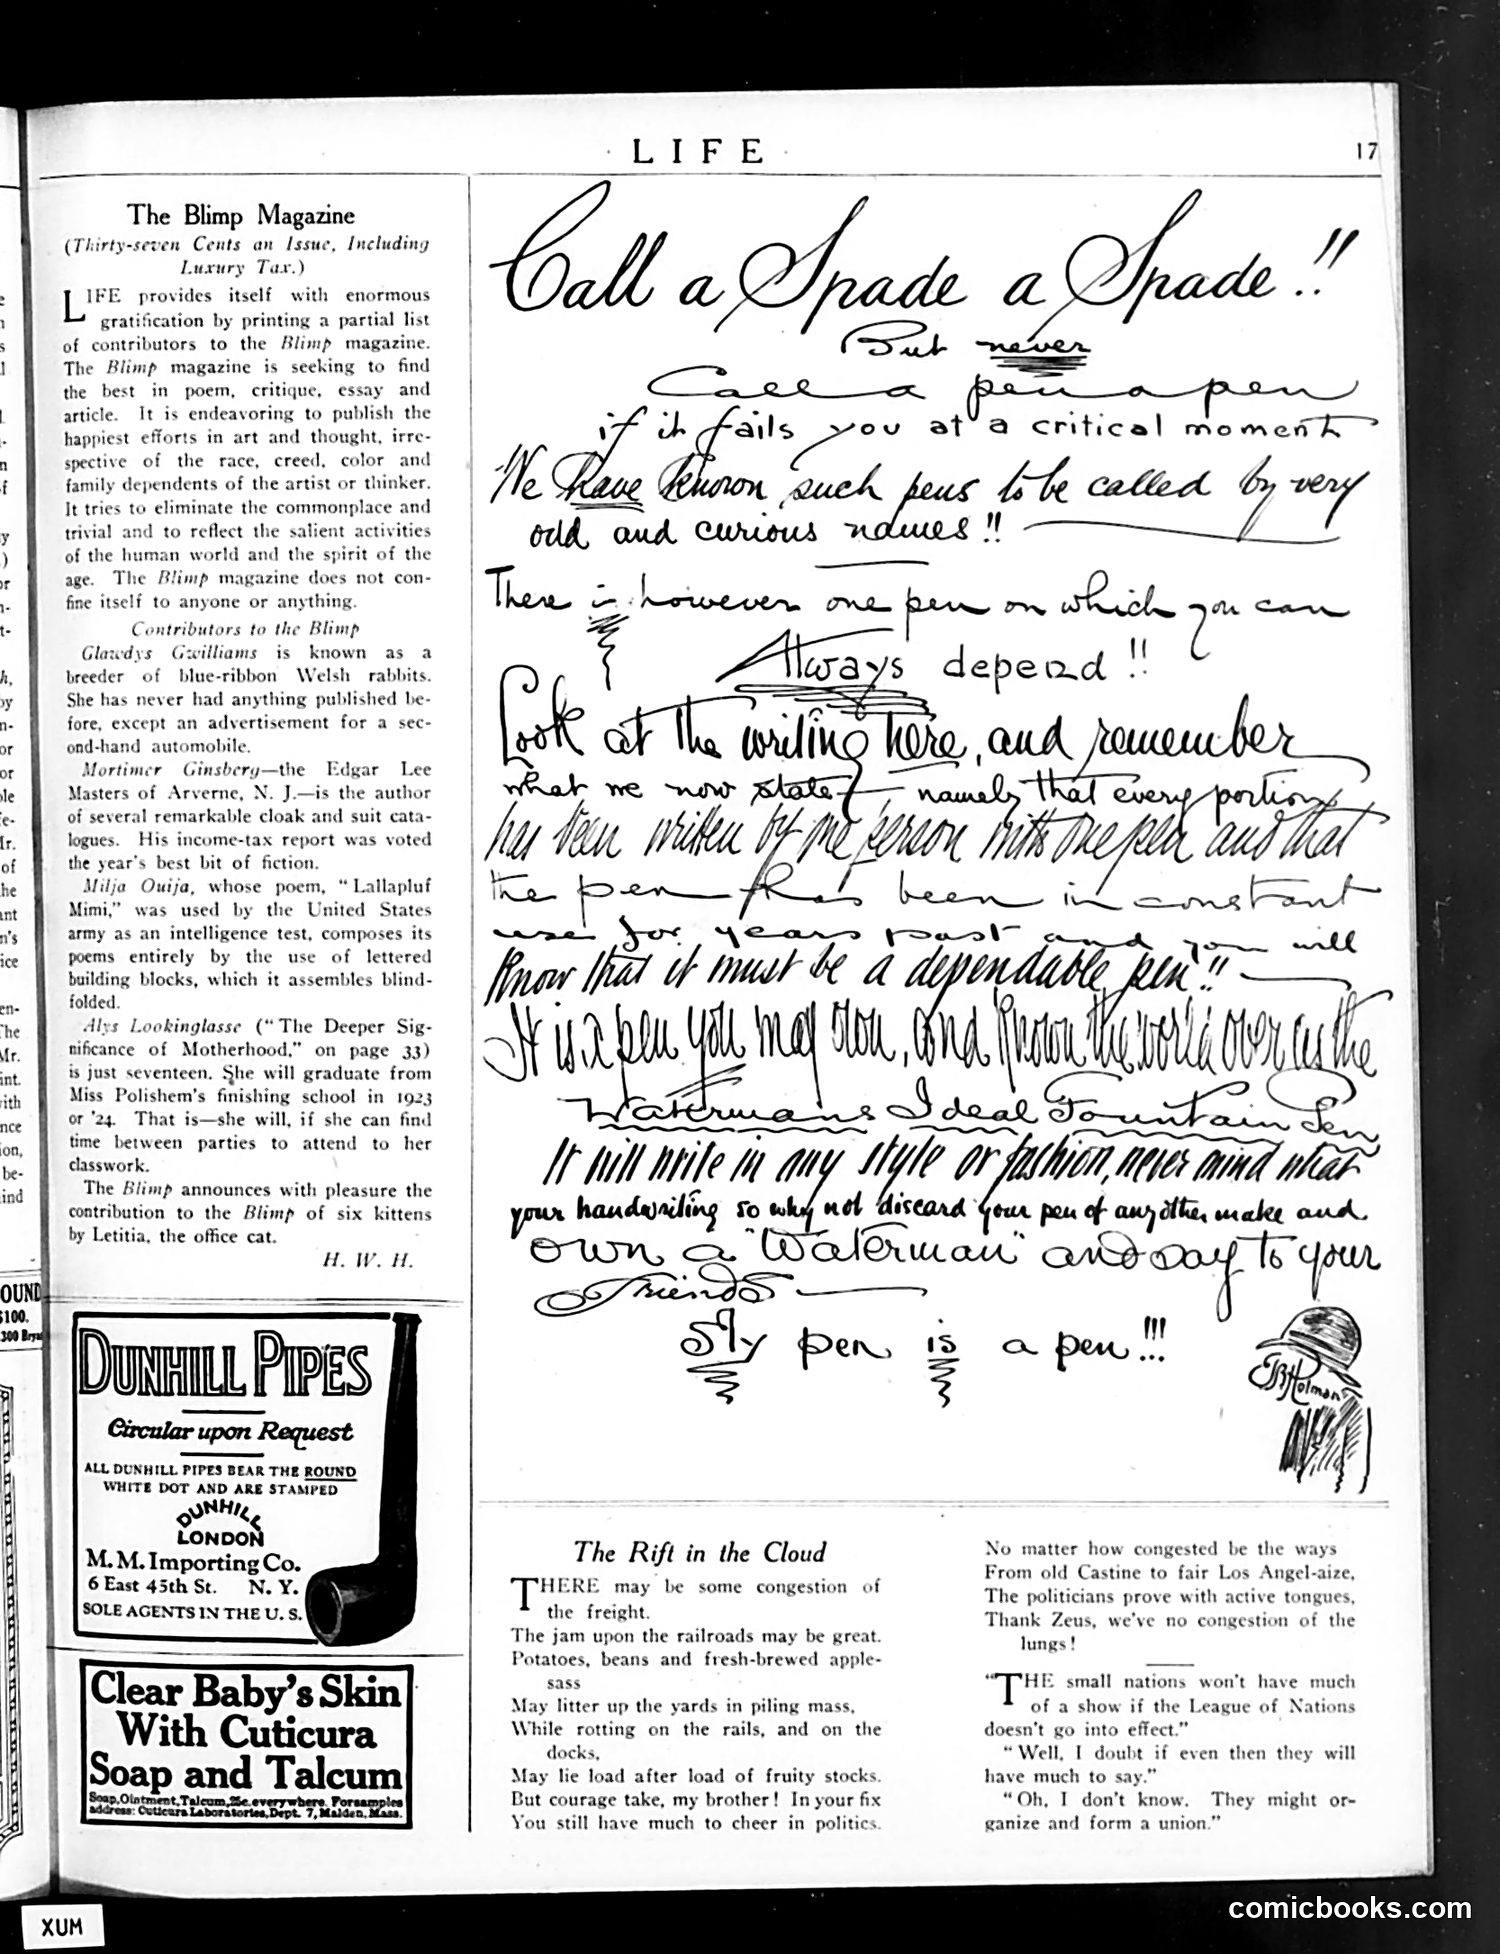 LIFE
17
The Blimp Magazine
(Thirty-seven Cents an Issue, Including
Luxury Tax.)
LIFE provides itself with enormous
gratification by printing a partial list
of contributors to the Blimp magazine.
The Blimp magazine is seeking to find
the best in poem, critique, essay and
article. It is endeavoring to publish the
happiest efforts in art and thought, irre-
spective of the race, creed, color and
family dependents of the artist or thinker.
It tries to eliminate the commonplace and
trivial and to reflect the salient activities
of the human world and the spirit of the
age. The Blimp magazine does not con-
fine itself to anyone or anything.
Contributors to the Blimp
Glawdys Gwilliams is known as a
breeder of blue-ribbon Welsh rabbits.
She has never had anything published be-
fore, except an advertisement for a sec-
ond-hand automobile.
Mortimer Ginsberg—the Edgar Lee
Masters of Arverne, N. J.—is the author
of several remarkable cloak and suit cata-
logues. His income-tax report was voted
the year's best bit of fiction.
Milja Ouija, whose poem, "Lallapluf
Mimi," was used by the United States
army as an intelligence test, composes its
poems entirely by the use of lettered
building blocks, which it assembles blind-
folded.
Alys Lookinglasse ("The Deeper Sig-
nificance of Motherhood," on page 33)
is just seventeen. She will graduate from
Miss Polishem's finishing school in 1923
or '24. That is—she will, if she can find
time between parties to attend to her
classwork.
The Blimp announces with pleasure the
contribution to the Blimp of six kittens
by Letitia, the office cat.
H. W. H.
DUNHILL PIPES
Circular upon Request
ALL DUNHILL PIPES BEAR THE ROUND
WHITE DOT AND ARE STAMPED
DUNHILL
LONDON
M. M. Importing Co.
6 East 45th St. N. Y.
SOLE AGENTS IN THE U. S.
Clear Baby's Skin
With Cuticura
Soap and Talcum
Soap, Ointment, Talcum, 25c. everywhere. For samples
address: Cuticura Laboratories, Dept. 7, Malden, Mass.
Call a Spade a Spade!!
But never
Call a pen a pen
if it fails you at a critical moment
We have known such pens to be called by very
odd and curious names!!
There is however one pen on which you can
Always depend!!
Look at the writing here, and remember
what we now state — namely that every portion
has been written by one person with one pen and that
the pen has been in constant
use for years past and you will
know that it must be a dependable pen!!
It is a pen you may own, and known the world over as the
Watermans Ideal Fountain Pen
It will write in any style or fashion, never mind what
your handwriting so why not discard your pen of any other make and
own a "Waterman" and say to your
Friends
My pen is a pen!!!
EB Holman
The Rift in the Cloud
THERE may be some congestion of
the freight.
The jam upon the railroads may be great.
Potatoes, beans and fresh-brewed apple-
sass
May litter up the yards in piling mass,
While rotting on the rails, and on the
docks,
May lie load after load of fruity stocks.
But courage take, my brother! In your fix
You still have much to cheer in politics.
No matter how congested be the ways
From old Castine to fair Los Angel-aize,
The politicians prove with active tongues,
Thank Zeus, we've no congestion of the
lungs!
"THE small nations won't have much
of a show if the League of Nations
doesn't go into effect."
"Well, I doubt if even then they will
have much to say."
"Oh, I don't know. They might or-
ganize and form a union."
OUND
$100.
XUM
comicbooks.com